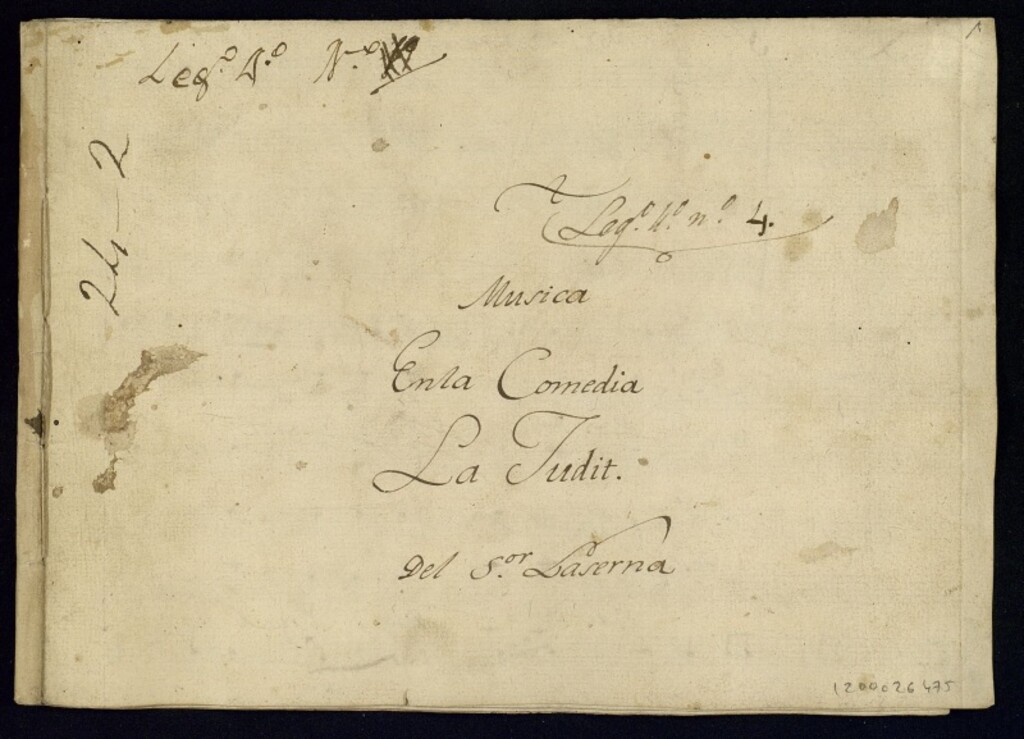 Leg.º 4.º N.º
24-2
Leg.º 4.º n.º 4.
Musica
Enla Comedia
La Judit.
Del S.or Laserna
1200026475